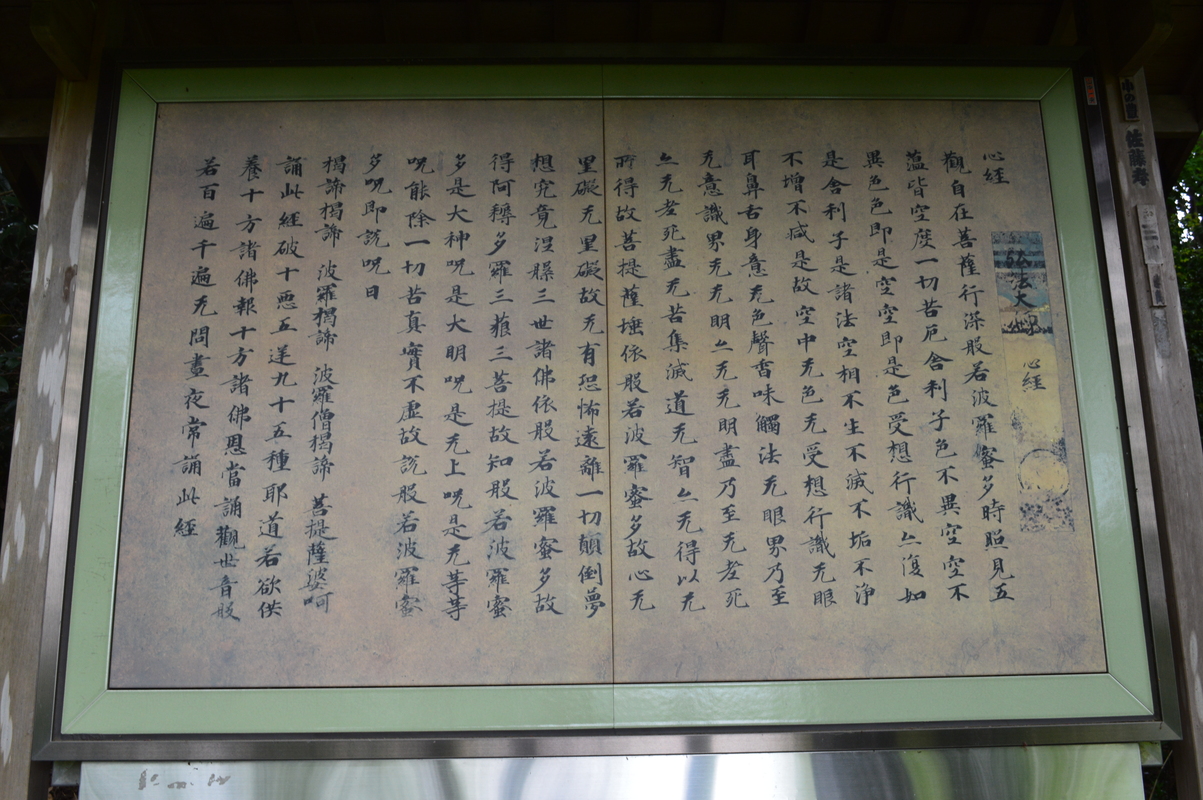 弘法大師 心経
心経
觀自在菩薩行深般若波羅蜜多時照見五
蘊皆空度一切苦厄舍利子色不異空空不
異色色即是空空即是色受想行識亠復如
是舍利子是諸法空相不生不滅不垢不浄
不增不減是故空中无色无受想行識无眼
耳鼻舌身意无色聲香味觸法无眼界乃至
无意識界无无明亠无无明盡乃至无老死
亠无老死盡无苦集滅道无智亠无得以无
所得故菩提薩埵依般若波羅蜜多故心无
罣礙无罣礙故无有恐怖遠離一切顛倒夢
想究竟涅槃三世諸佛依般若波羅蜜多故
得阿耨多羅三藐三菩提故知般若波羅蜜
多是大神呪是大明呪是无上呪是无等等
呪能除一切苦真實不虛故說般若波羅蜜
多呪即說呪曰
揭諦揭諦 波羅揭諦 波羅僧揭諦 菩提薩婆呵
誦此經破十悪五逆九十五種耶道若欲供
養十方諸佛報十方諸佛恩當誦觀世音般
若百遍千遍无問晝夜常誦此經
中の
佐藤寿